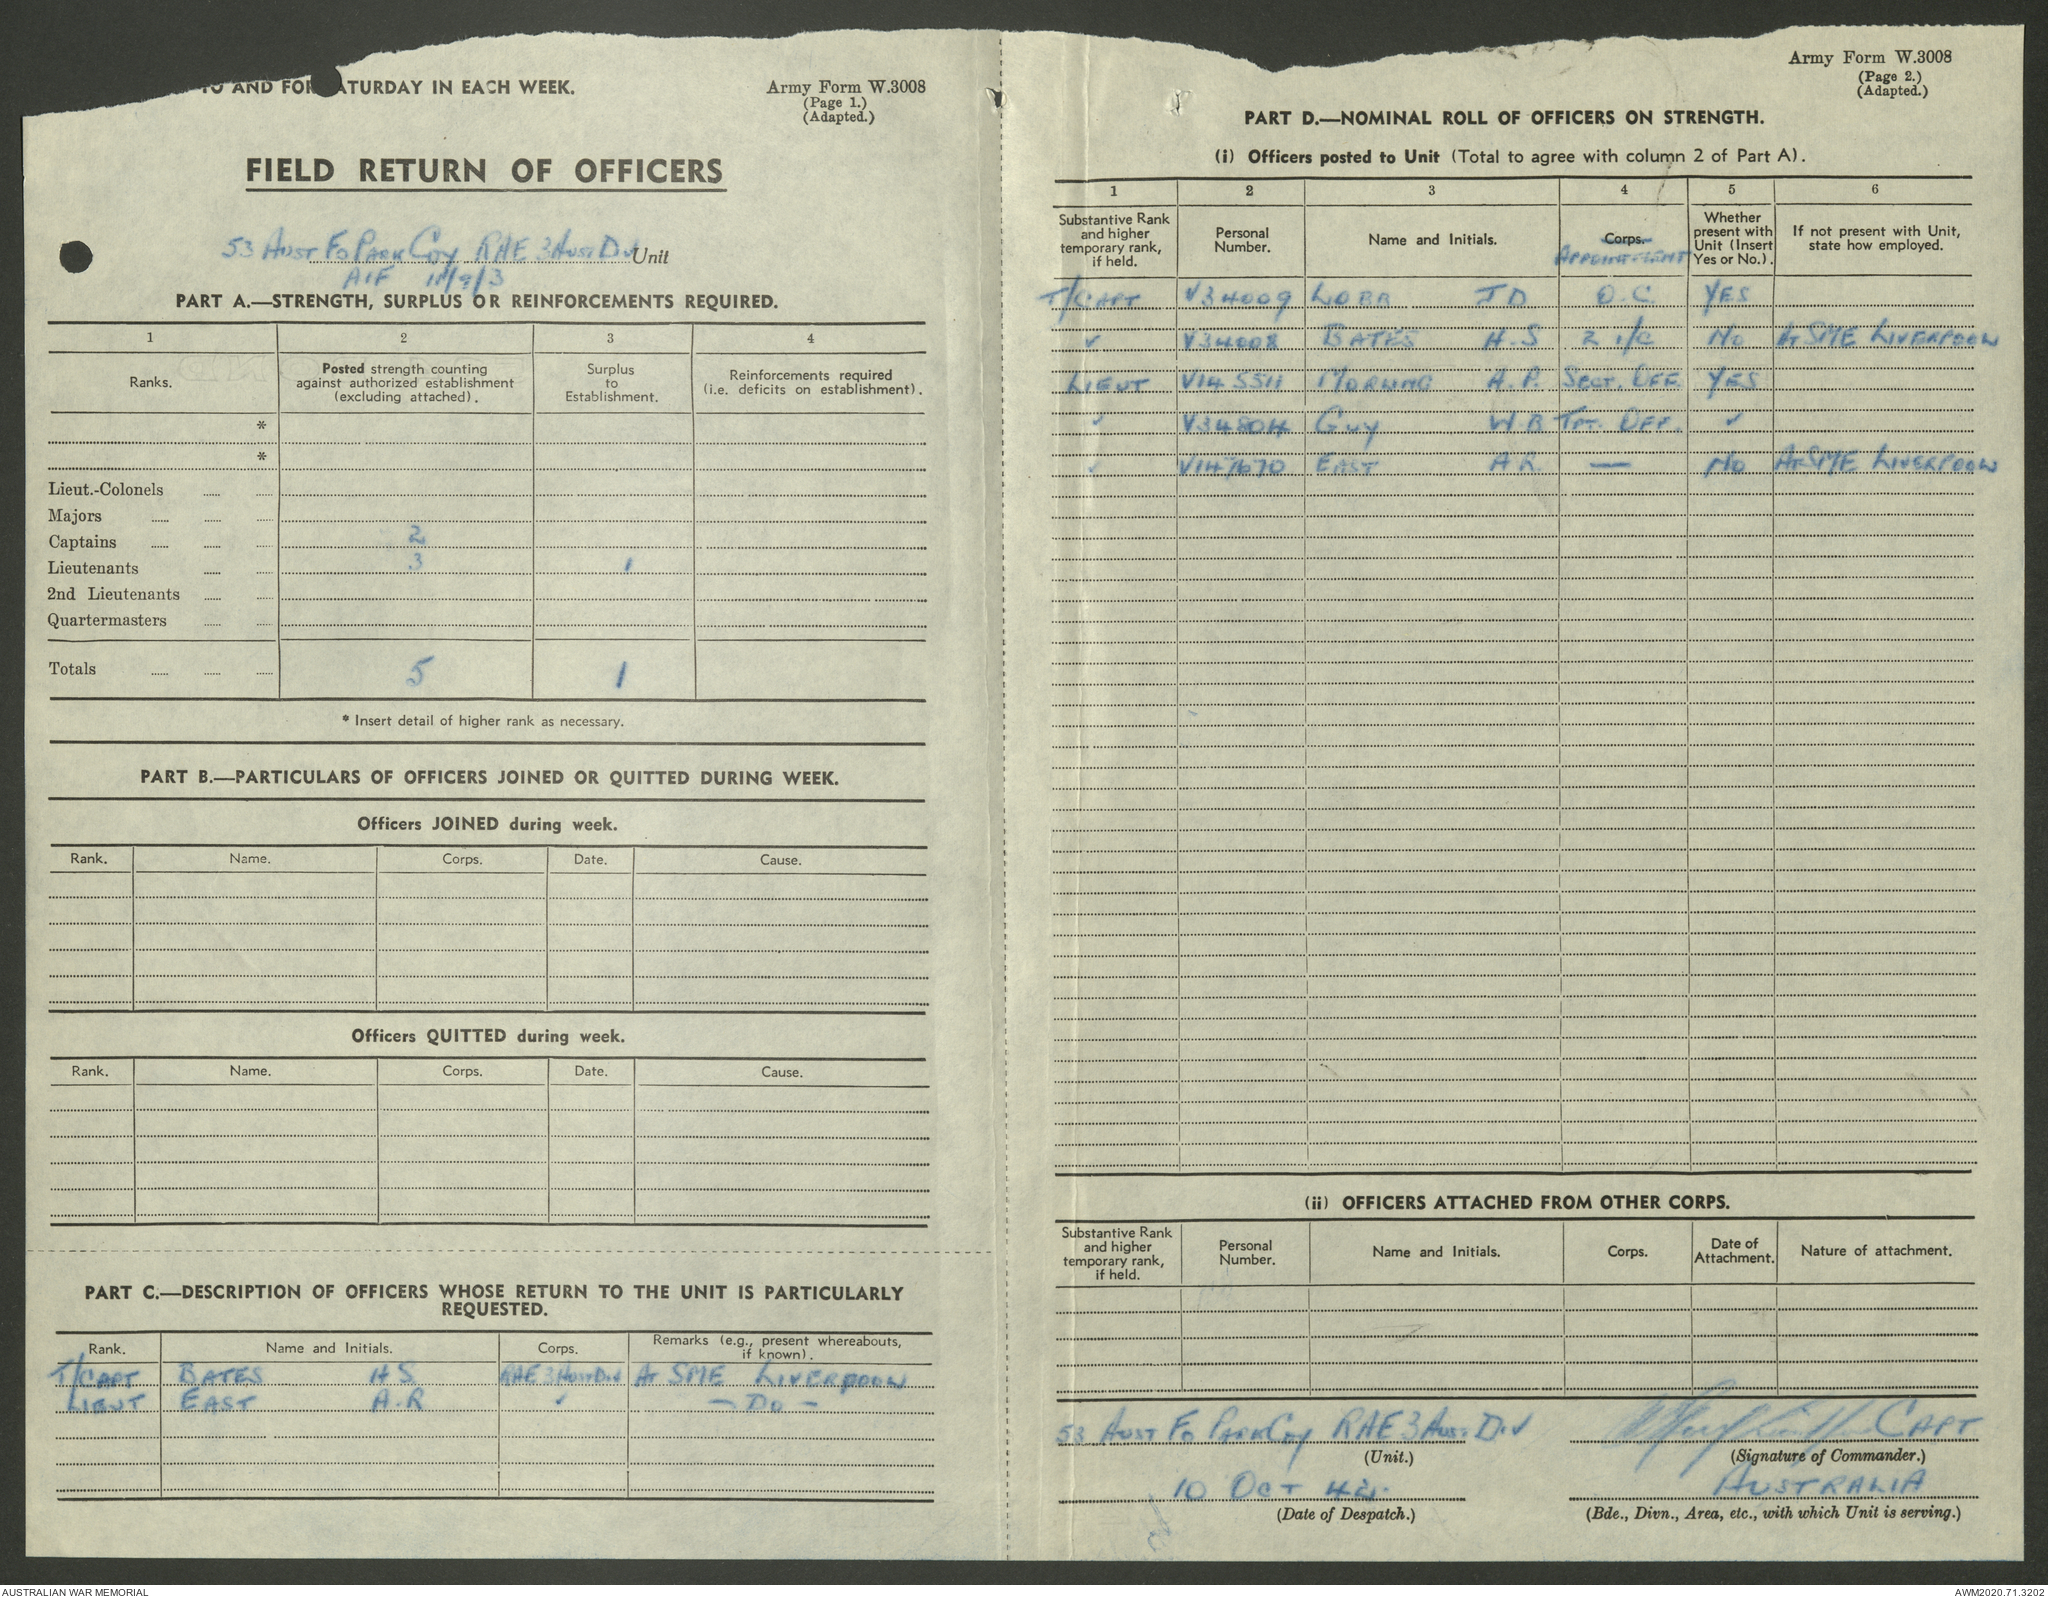 TO AND FOR SATURDAY IN EACH WEEK.
Army Form W.3008
(Page 1.)
(Adapted.)
FIELD RETURN OF OFFICERS
53 Aust Fd Park Coy RAE 3 Aust Div Unit
AIF
PART A.—STRENGTH, SURPLUS OR REINFORCEMENTS REQUIRED.
1 2 3 4
Ranks. Posted strength counting against authorized establishment (excluding attached). Surplus to Establishment. Reinforcements required (i.e. deficits on establishment).
*
*
Lieut.-Colonels
Majors
Captains 2
Lieutenants 3 1
2nd Lieutenants
Quartermasters
Totals 5 1
* Insert detail of higher rank as necessary.
PART B.—PARTICULARS OF OFFICERS JOINED OR QUITTED DURING WEEK.
Officers JOINED during week.
Rank. Name. Corps. Date. Cause.
Officers QUITTED during week.
Rank. Name. Corps. Date. Cause.
PART C.—DESCRIPTION OF OFFICERS WHOSE RETURN TO THE UNIT IS PARTICULARLY
REQUESTED.
Rank. Name and Initials. Corps. Remarks (e.g., present whereabouts, if known).
T/CAPT BATES H S RAE 3 Aust Div At SME LIVERPOOL
LIEUT EAST A.R ✓ — Do —
Army Form W.3008
(Page 2.)
(Adapted.)
PART D.—NOMINAL ROLL OF OFFICERS ON STRENGTH.
(i) Officers posted to Unit (Total to agree with column 2 of Part A).
1 2 3 4 5 6
Substantive Rank and higher temporary rank, if held. Personal Number. Name and Initials. Corps. APPOINTMENT Whether present with Unit (Insert Yes or No.). If not present with Unit, state how employed.
T/CAPT V34009 LOBB J D O.C. YES
✓ V34008 BATES H.S 2 i/c No At SME LIVERPOOL
LIEUT MORLING A.P. Sect. OFF. YES
✓ GUY W.B Tpt. OFF. ✓
✓ EAST A R. — No At SME LIVERPOOL
(ii) OFFICERS ATTACHED FROM OTHER CORPS.
Substantive Rank and higher temporary rank, if held. Personal Number. Name and Initials. Corps. Date of Attachment. Nature of attachment.
53 Aust Fd Park Coy RAE 3 Aust Div
(Unit.)
CAPT
(Signature of Commander.)
10 OCT 42.
(Date of Despatch.)
AUSTRALIA
(Bde., Divn., Area, etc., with which Unit is serving.)
AUSTRALIAN WAR MEMORIAL
AWM2020.71.3202